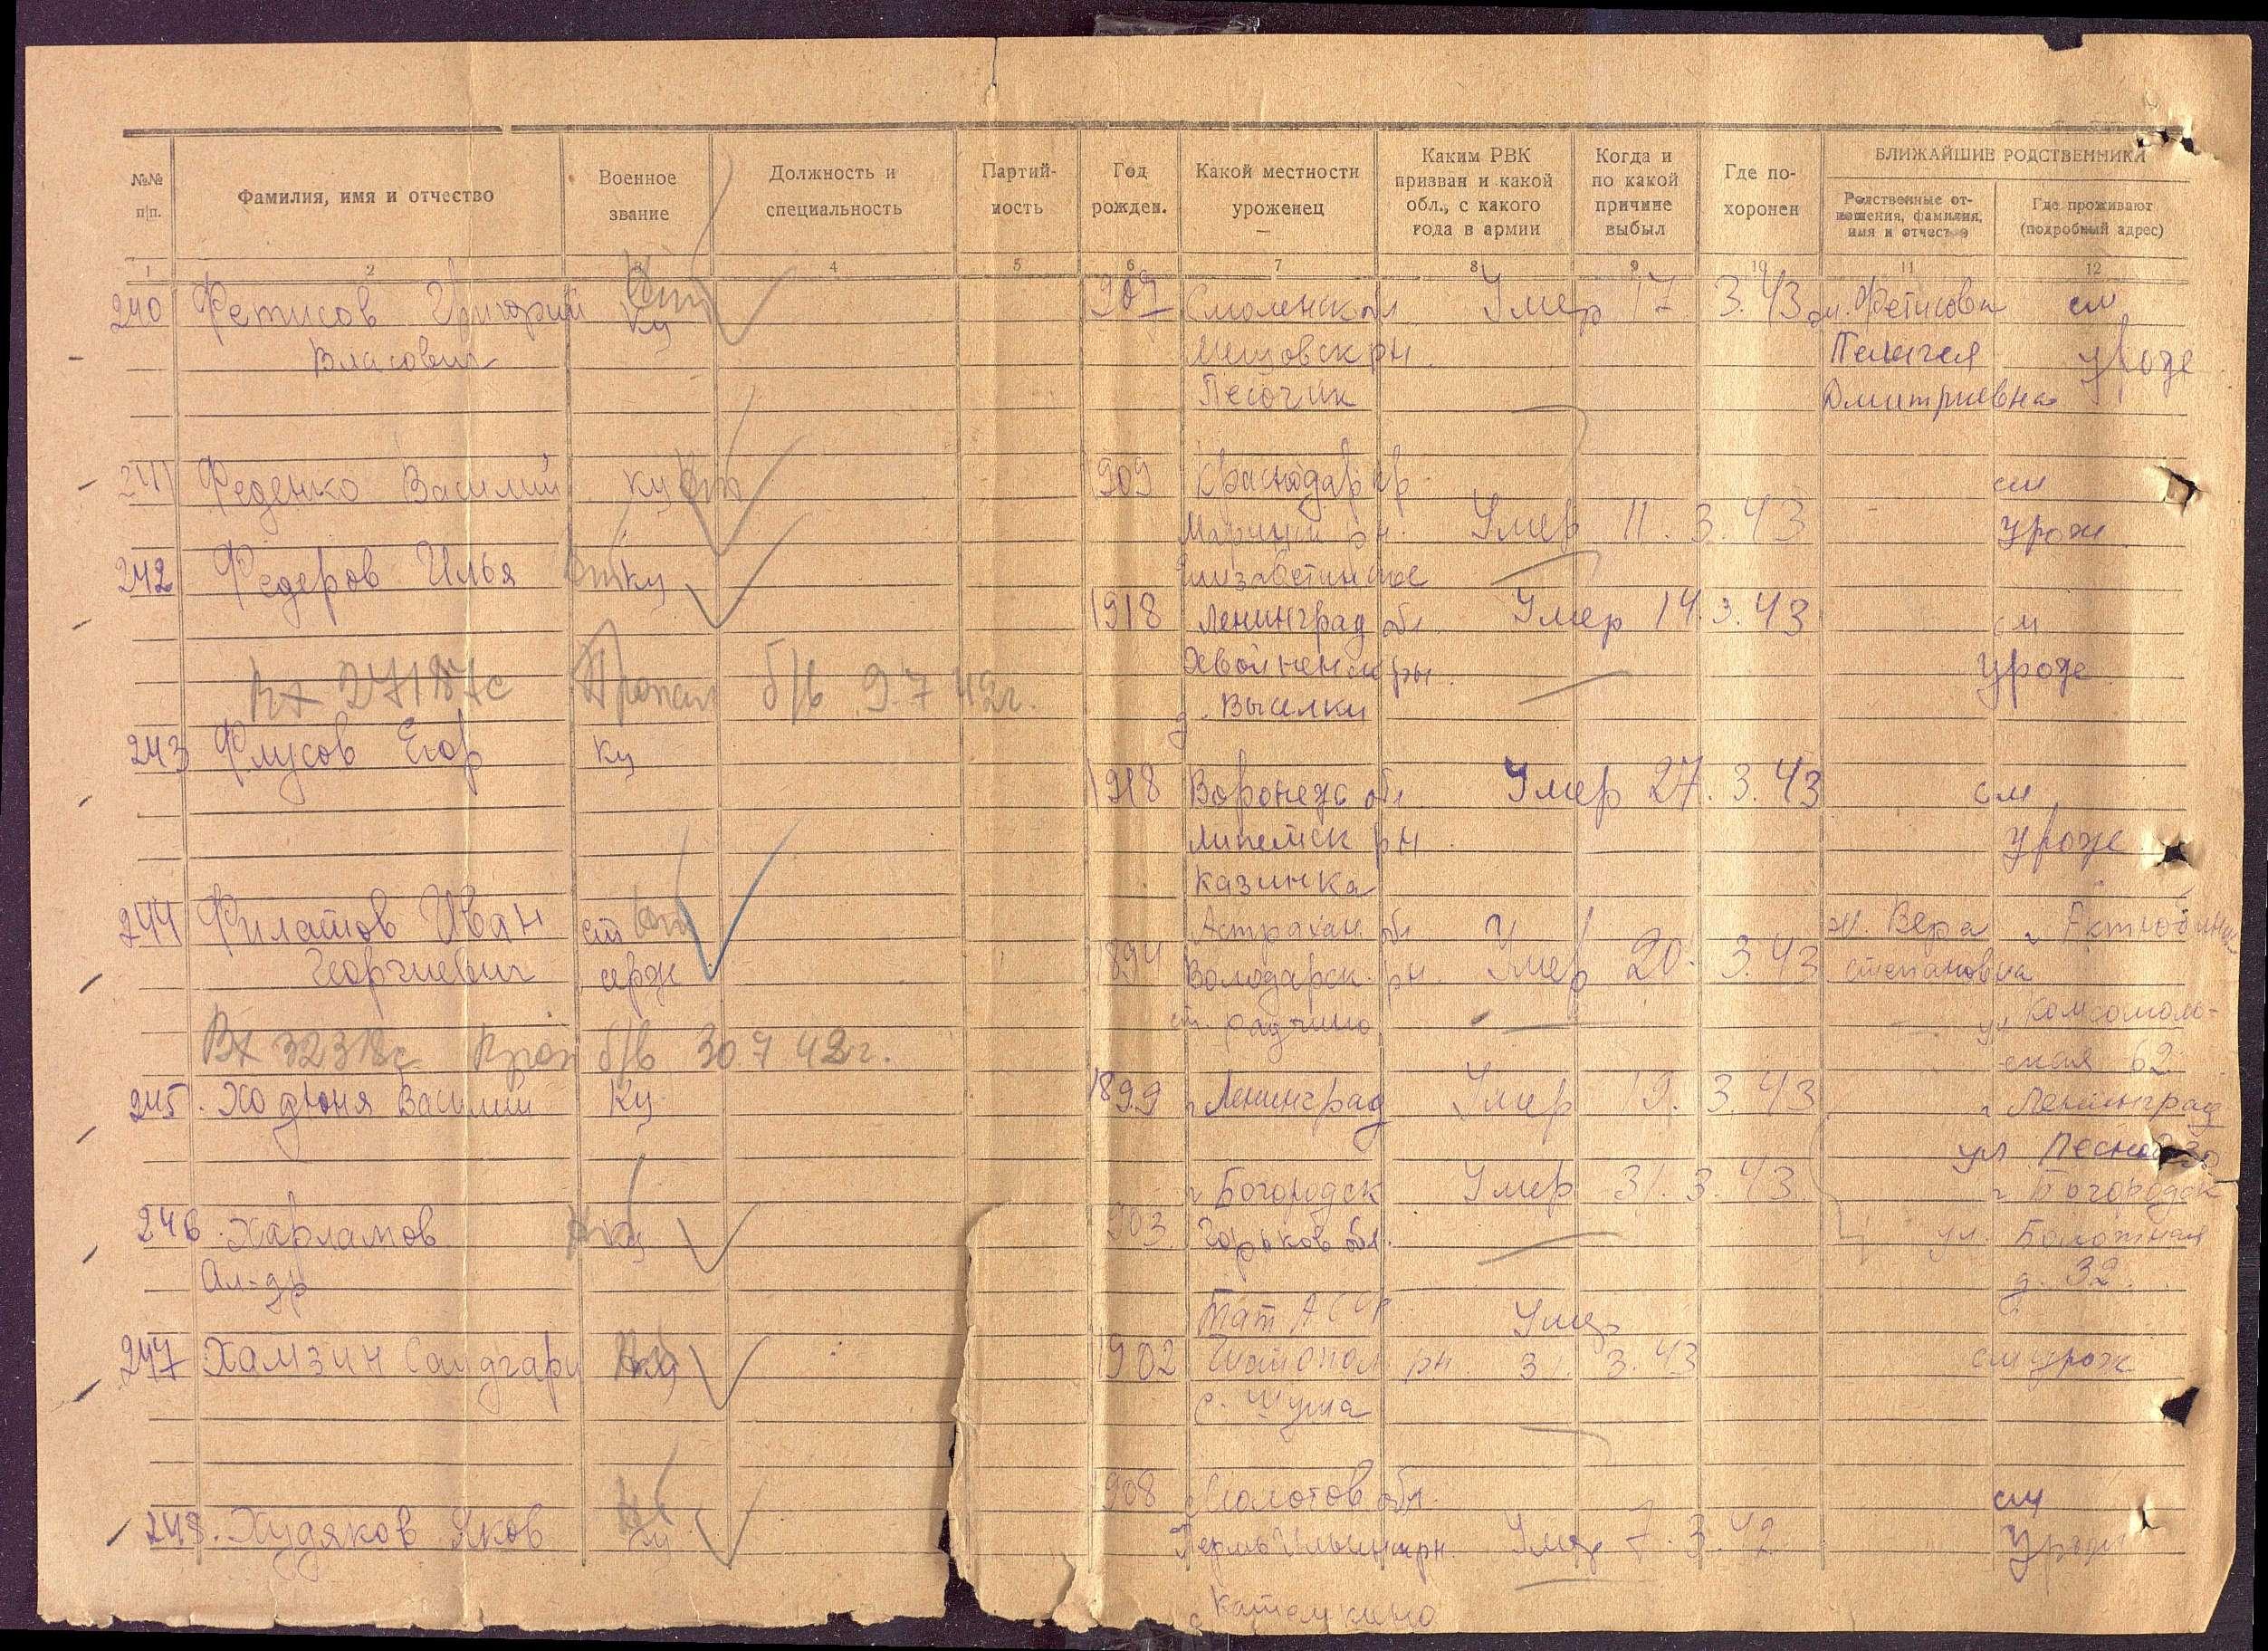 №№ п/п.
Фамилия, имя и отчество
Военное звание
Должность и специальность
Партийность
Год рожден.
Какой местности уроженец
Каким РВК призван и какой обл., с какого года в армии
Когда и по какой причине выбыл
Где похоронен
БЛИЖАЙШИЕ РОДСТВЕННИКИ
Родственные отношения, фамилия, имя и отчество
Где проживают (подробный адрес)
1 2 3 4 5 6 7 8 9 10 11 12
240 Фетисов Григорий кц 909 Смоленск обл Умер 17 3.43 Фетисова см
Власович Мещовск рн. Пелагея уроже
Песочик Дмитриевна
241 Феденко Василий кц 909 Краснодар кр см
рн. Умер 11.3.43 урож
242 Федеров Илья кц
1918 Ленинград обл Умер 14.3.43 см
Хвойненск рн. уроже
Вх 27187с Пропал б/в 9.7 42г. д. Выселки
243 Флусов Егор кц
1918 Воронеж обл Умер 27.3.43 см
Липетск рн уроже
Казинка
244 Филатов Иван ст Астрахан. обл ж. Вера г
Георгиевич серж 1894 Володарск. рн. Умер 20.3.43 степановна
ст. ул Комсомоль-
Вх 32318с Проп б/в 30 7 42г. ская 62
245. Ходюня Василий Кц 1899 г Ленинград Умер 19.3.43 г Ленинград
ул
г Богородск Умер 31.3.43 г Богородск
246 Харламов кц 903 Горьков обл. ул. Болотная
Ал-др д. 32.
Тат АССР Умер
247 Хамзин Саидгари кц 1902 рн. 31 3.43 см урож
с. Шума
908 Молотов обл. см
248. Худяков Яков кц рн. Умер 7.3.42 Урож
с